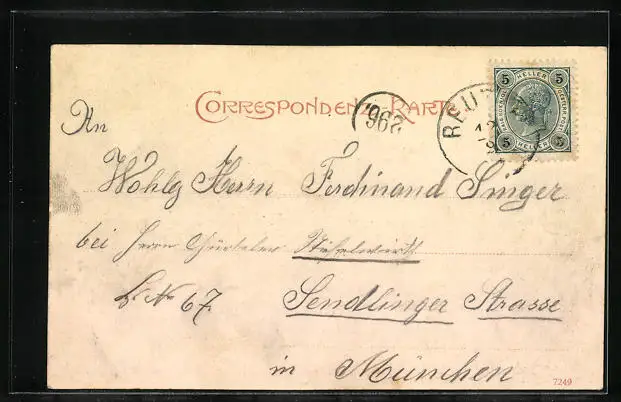 CORRESPONDENZ-KARTE
5 HELLER 5
5 5
REUT
962
An
Wohlg Herrn Ferdinand Singer
bei Herrn
No 67 Sendlinger Strasse
in München
7249